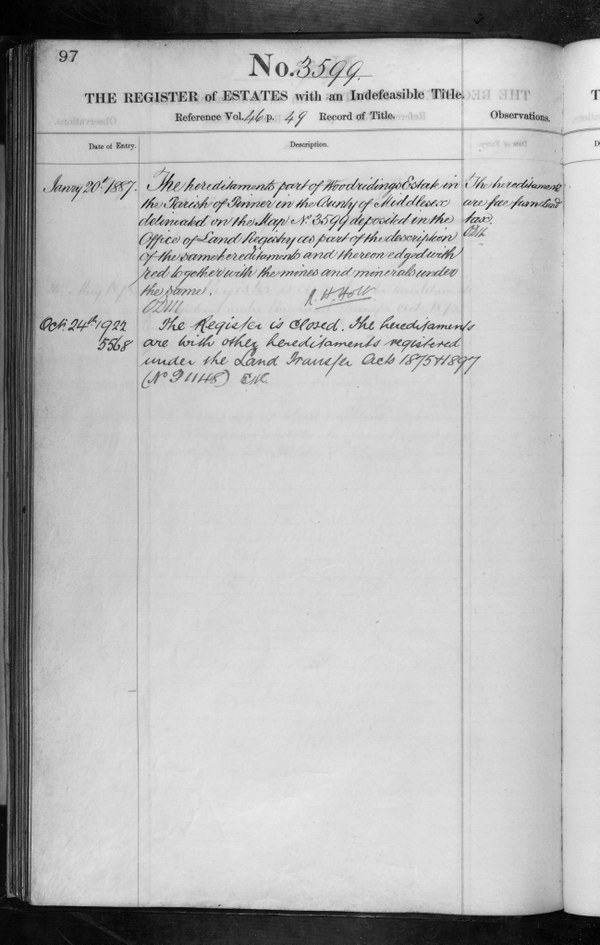 97
No. 3599
THE REGISTER of ESTATES with an Indefeasible Title.
Reference Vol. 46 p. 49 Record of Title.
Observations.
Date of Entry.
Description.
Janry 20th 1887.
The hereditaments part of Woodridings Estate in
the Parish of Pinner in the County of Middlesex
delineated on the Map No 3599 deposited in the
Office of Land Registry as part of the description
of the same hereditaments and thereon edged with
red together with the mines and minerals under
the same.
R. H. Holt
The hereditaments
are free from land
tax.
Oct. 24th 1922
5568
The Register is Closed. The hereditaments
are with other hereditaments registered
under the Land Transfer Acts 1875 & 1897
(No P 1148)